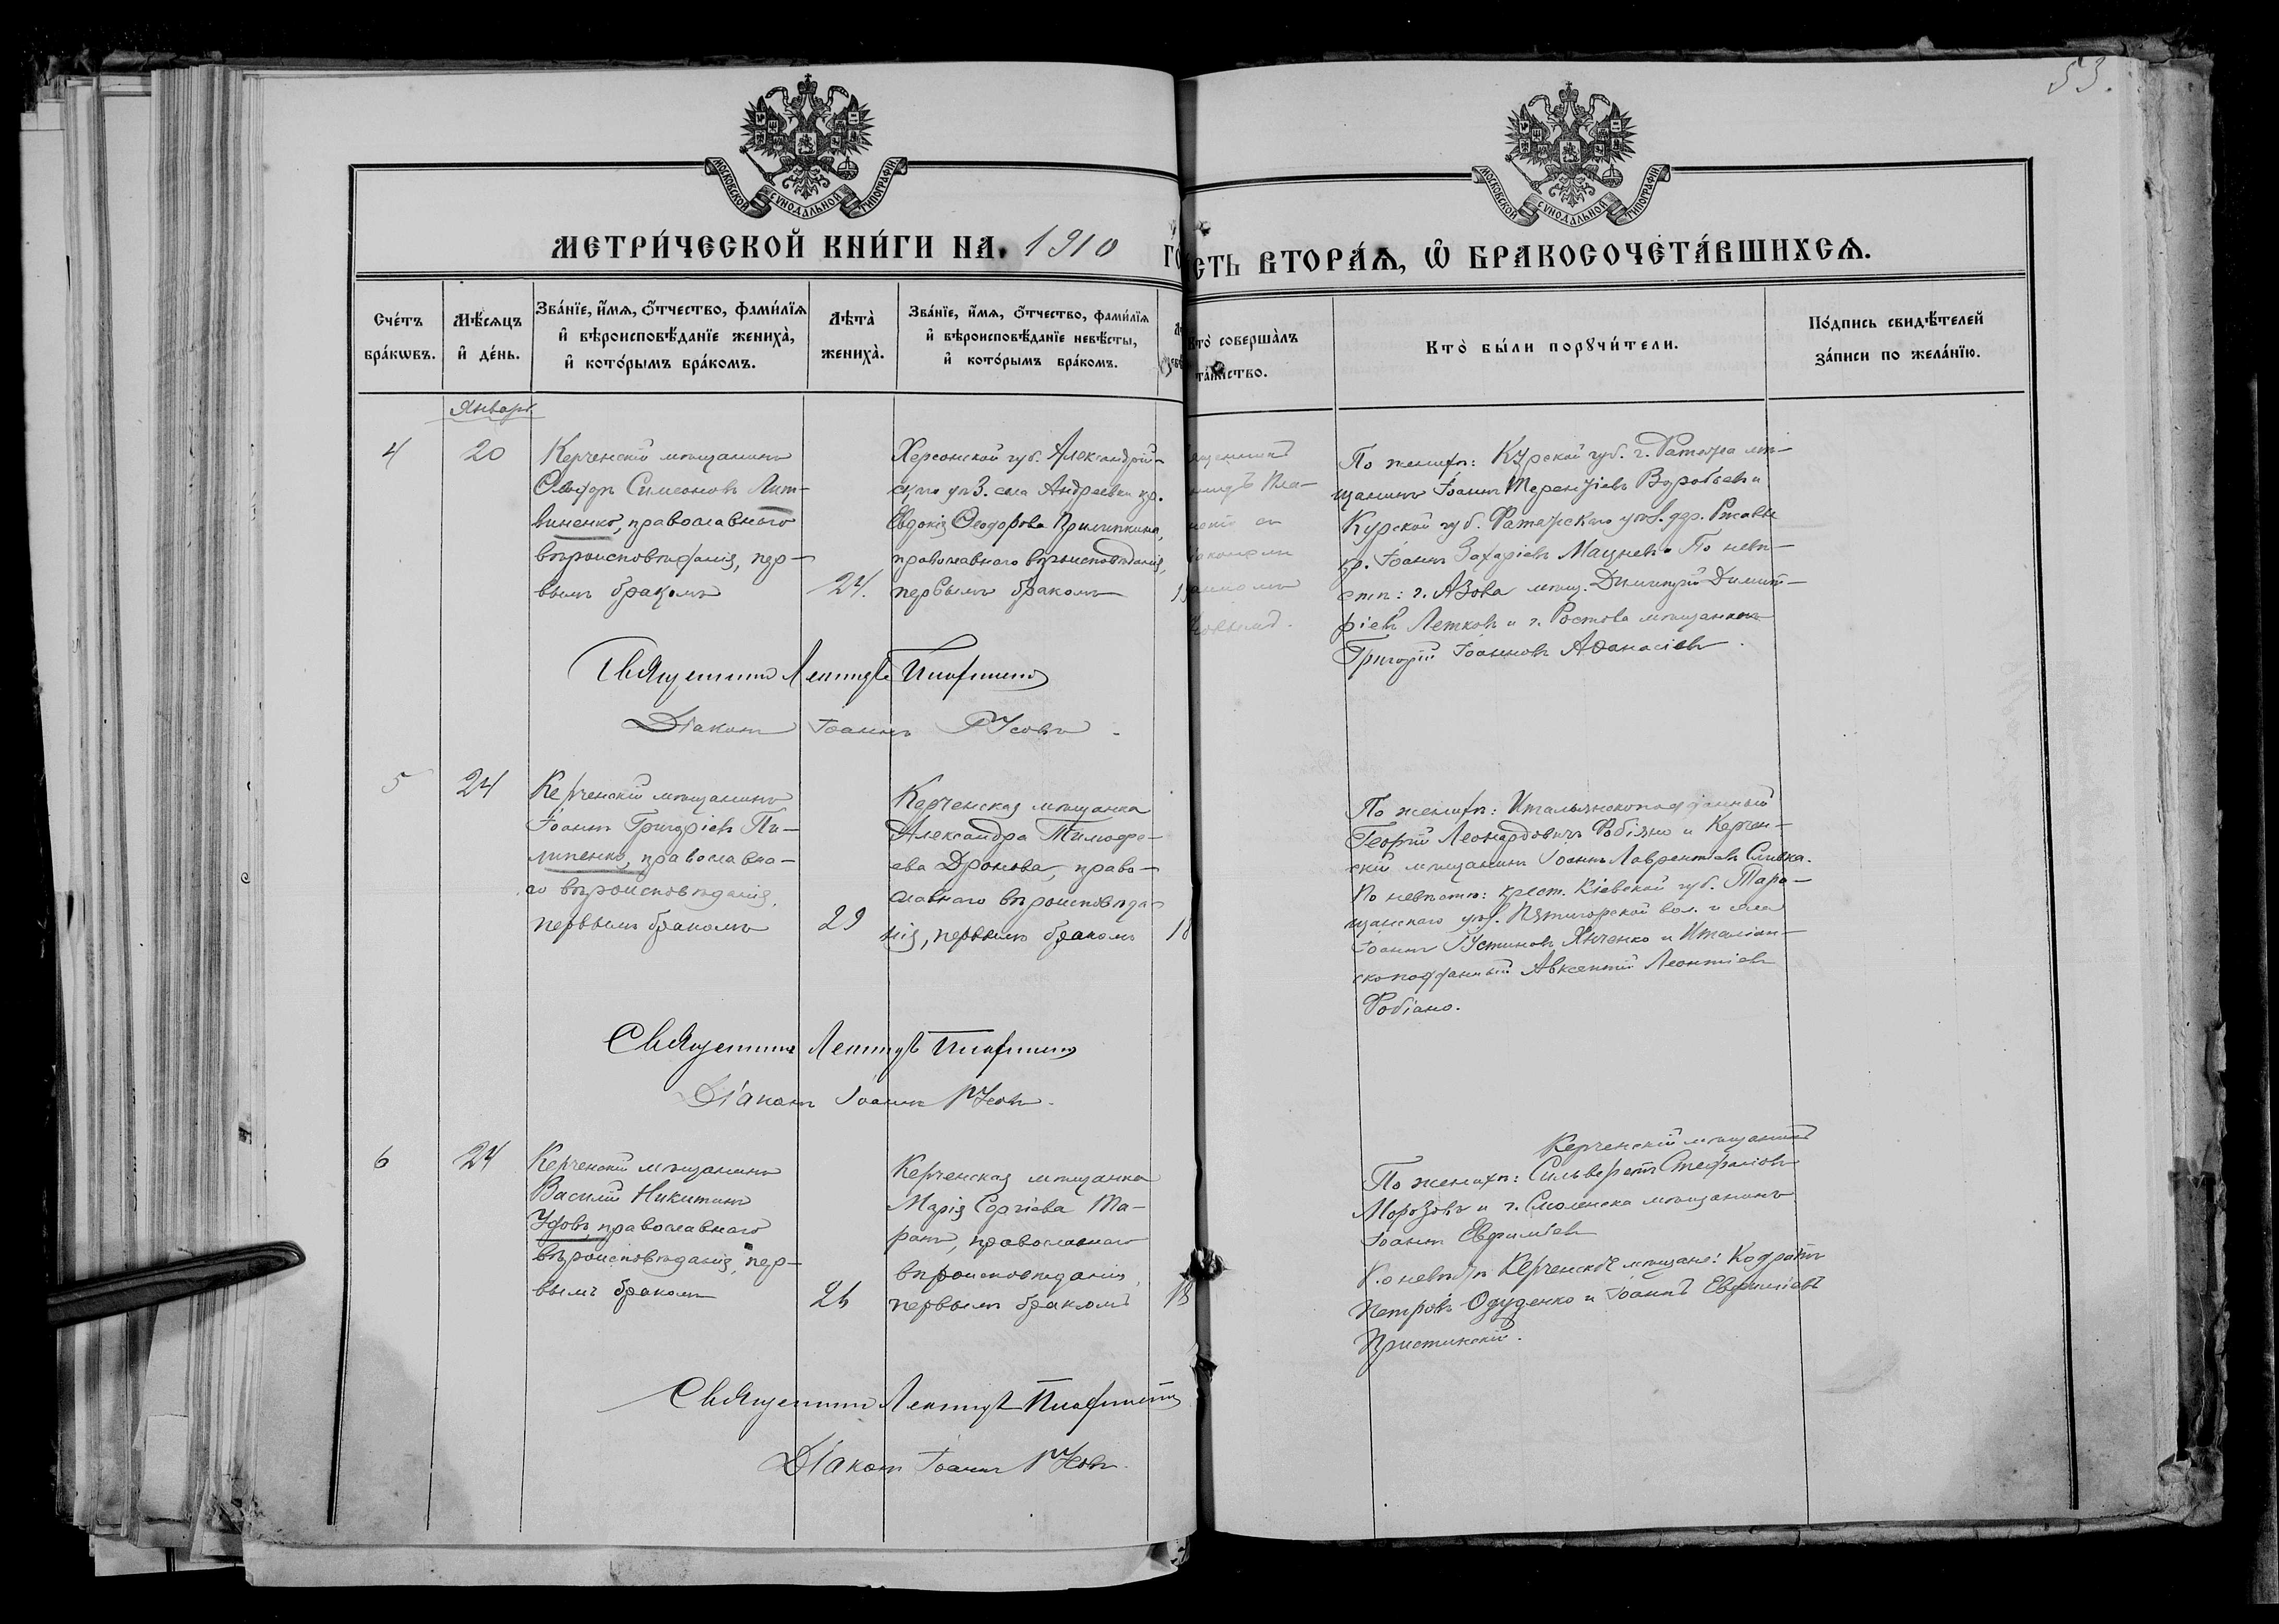 53.
МОСКОВСКОЙ СѴНОДАЛЬНОЙ ТИПОГРАФІИ
МОСКОВСКОЙ СѴНОДАЛЬНОЙ ТИПОГРАФІИ
МЕТРИ́ЧЕСКОЙ КНИ́ГИ НА 1910 ГО
СТЬ ВТОРА́Ѧ, Ѽ БРАКОСОЧЕТА́ВШИХСѦ.
Сче́тъ бра́кѡвъ.
Мѣ́сѧцъ и҆ де́нь.
Зва́нїе, и҆́мѧ, ѻ҆́тчество, фами́лїѧ
и҆ вѣроисповѣ́данїе жениха̀,
и҆ кото́рымъ бра́комъ.
Лѣта̀ жениха̀.
Зва́нїе, и҆́мѧ, ѻ҆́тчество, фами́лїѧ
и҆ вѣроисповѣ́данїе невѣ́сты,
и҆ кото́рымъ бра́комъ.
Кто̀ соверша̀лъ
та́инство.
Кто̀ бы́ли порꙋчи́тели.
По́дпись свидѣ́телей
за́писи по жела́нїю.
Январь
4
20
Керченскій мѣщанинъ
Ѳеодоръ Симеоновъ Лит-
виненко, православнаго
вѣроисповѣданія, пер-
вымъ бракомъ
24.
Херсонской губ. Александрій-
скаго уѣз. села Андреевки кр.
Евдокія Ѳеодорова Прилипкина,
православнаго вѣроисповѣданія,
первымъ бракомъ
По женихѣ: Курской губ. г. Фатежа мѣ-
щанинъ Іоаннъ Терентіевъ Воробьевъ и
Курской губ. Фатежскаго уѣз. дер. Ржавы
кр. Іоаннъ Захаріевъ Мацневъ. По невѣ-
стѣ: г. Азова мѣщ. Димитрій Димит-
ріевъ Летковъ и г. Ростова мѣщанинъ
Григорій Іоанновъ Аѳанасіевъ.
Священникъ Леонидъ
Діаконъ Іоаннъ Усовъ.
5
24
Керченскій мѣщанинъ
Іоаннъ Григоріевъ Пи-
липенко, православна-
го вѣроисповѣданія,
первымъ бракомъ
29
Керченская мѣщанка
Александра Тимоѳе-
ева Дронова, право-
славнаго вѣроисповѣда-
нія, первымъ бракомъ
18
По женихѣ: Итальянскоподданный
Георгій Леонардовичъ Фабіяно и Керчен-
скій мѣщанинъ Іоаннъ Лаврентіевъ Сливка.
По невѣстѣ: крест. Кіевской губ. Тара-
щанскаго уѣз. Пятигорской вол. и села
Іоаннъ Устиновъ Янченко и Италіан-
скоподданный Авксентій Леонтіевъ
Фабіано.
Священникъ Леонидъ
Діаконъ Іоаннъ Усовъ.
6
24
Керченскій мѣщанинъ
Василій Никитинъ
православнаго
вѣроисповѣданія, пер-
вымъ бракомъ
Керченская мѣщанка
Марія Сергіева Та-
ранъ, православнаго
вѣроисповѣданія,
первымъ бракомъ
18
Керченскій мѣщанинъ
По женихѣ: Сильвестръ Стефановъ
Морозовъ и г. Смоленска мѣщанинъ
Іоаннъ Евфиміевъ
По невѣстѣ Керченскіе мѣщане: Кодратъ
Петровъ и Іоаннъ Евфиміевъ
Пристинскій.
Священникъ Леонидъ
Діаконъ Іоаннъ Усовъ.